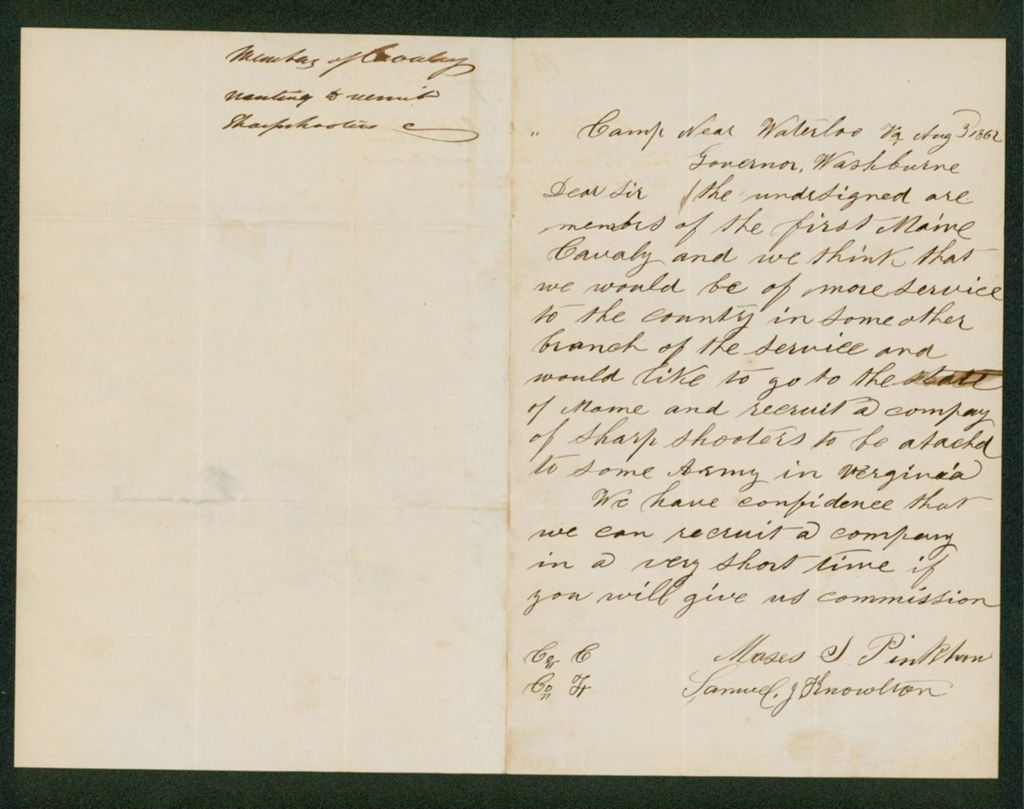 Members of Cavalry
wanting to recruit
Sharpshooters
" Camp Near Waterloo Va Aug 3 1862
Governor, Washburne
Dear Sir the undrsigned are
membrs of the first Maine
Cavaly and we think that
we would be of more service
to the county in some other
branch of the service and
would like to go to the state
of Mame and recruit a compay
of sharp shooters to be atachd
to some Army in Verginia
We have confidence that
we can recruit a company
in a very short time if
you will give us commission
Co C Moses S Pinkham
Co F Samuel J Knowlton